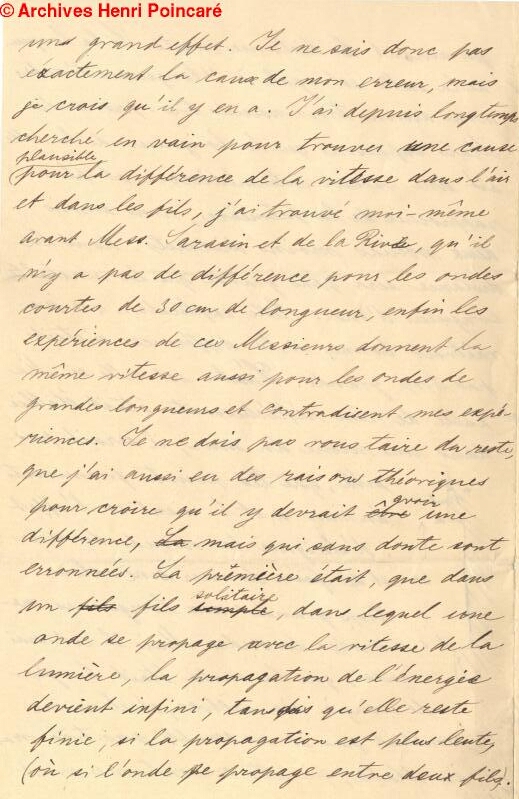 © Archives Henri Poincaré
uns grand effet. Je ne sais donc pas
éxactement la cause de mon erreur, mais
je crois qu'il y en a. J'ai depuis longtemps
cherché en vain pour trouver une cause
plausible
(pour la différence de la vitesse dans l'air
et dans les fils, j'ai trouvé moi-même
avant Mess. Sarasin et de la Rive, qu'il
n'y a pas de différence pour les ondes
courtes de 30 cm de longueur, enfin les
expériences de ces Messieurs donnent la
même vitesse aussi pour les ondes de
grandes longueurs et contradisent mes expé-
riences. Je ne dois pas vous taire du reste,
que j'ai aussi eu des raisons théoriques
avoir
pour croire qu'il y devrait être une
différence, La mais qui sans doute sont
erronnées. La première était, que dans
solitaire
un fils fils simple, dans lequel une
onde se propage avec la vitesse de la
lumière, la propagation de l'énergie
devient infini, tandis qu'elle reste
finie, si la propagation est plus lente,
(où si l'onde se propage entre deux fils).